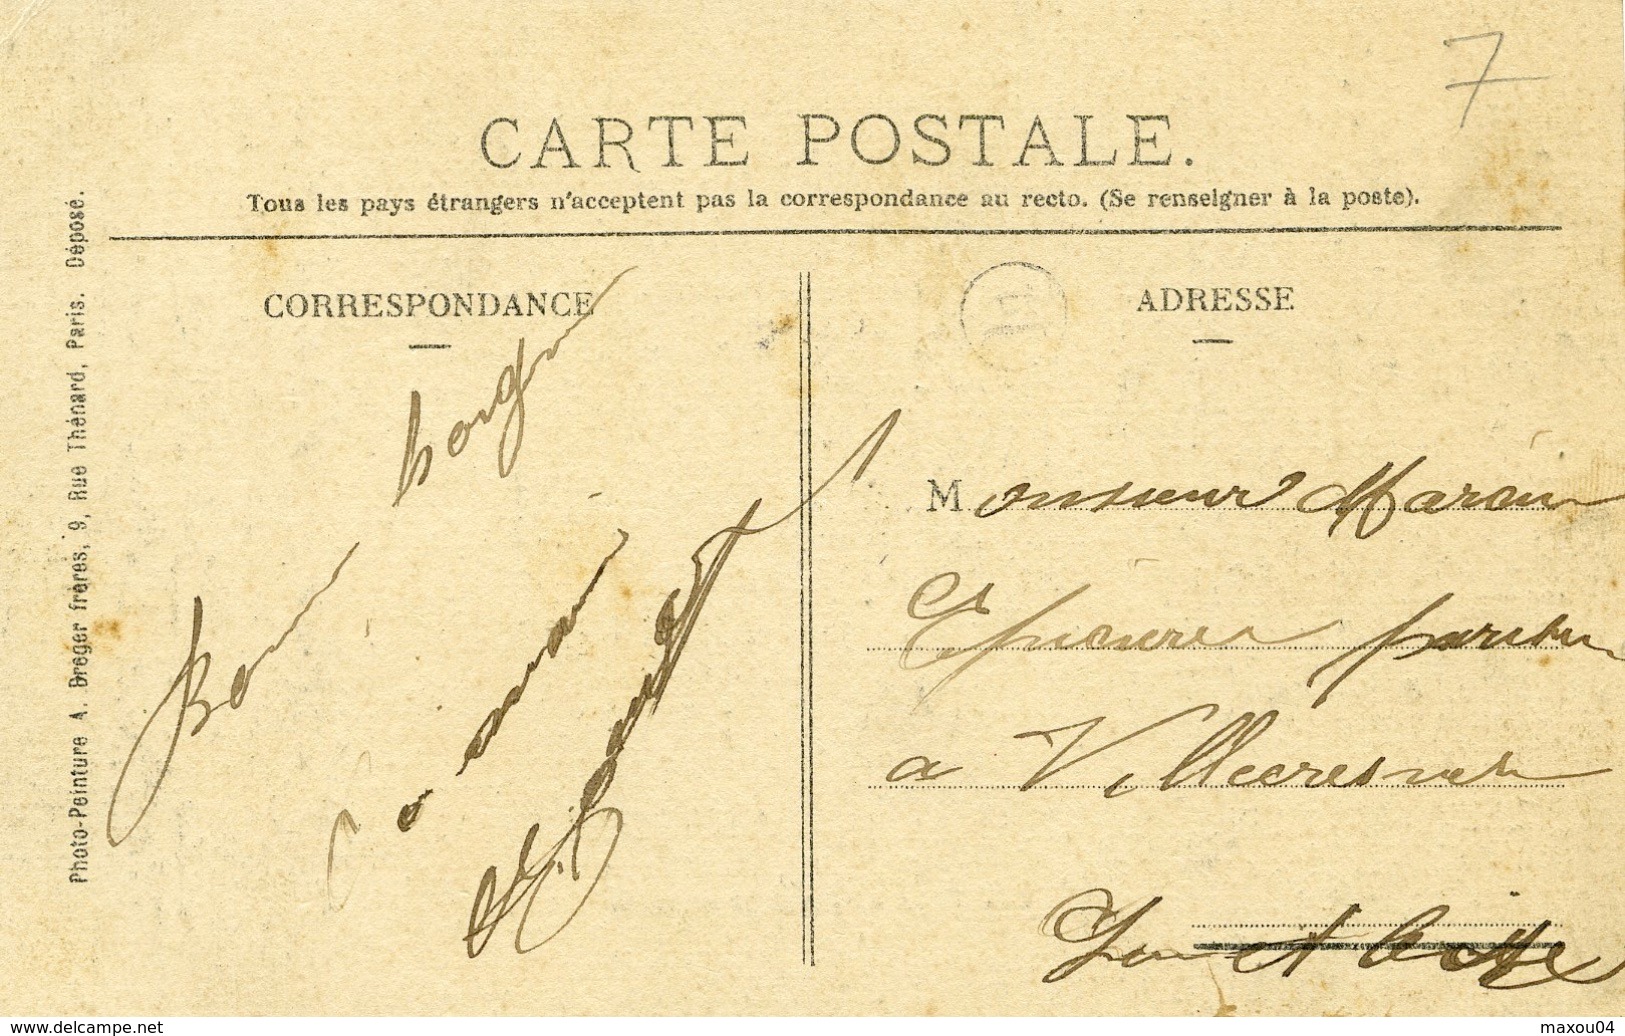 7
CARTE POSTALE.
Tous les pays étrangers n'acceptent pas la correspondance au recto. (Se renseigner à la poste).
Photo-Peinture A. Breger frères, 9, Rue Thénard, Paris. Déposé.
CORRESPONDANCE
Bon
ADRESSE
Monsieur Marcin
a Villecresnes
et Oise
www.delcampe.net
maxou04